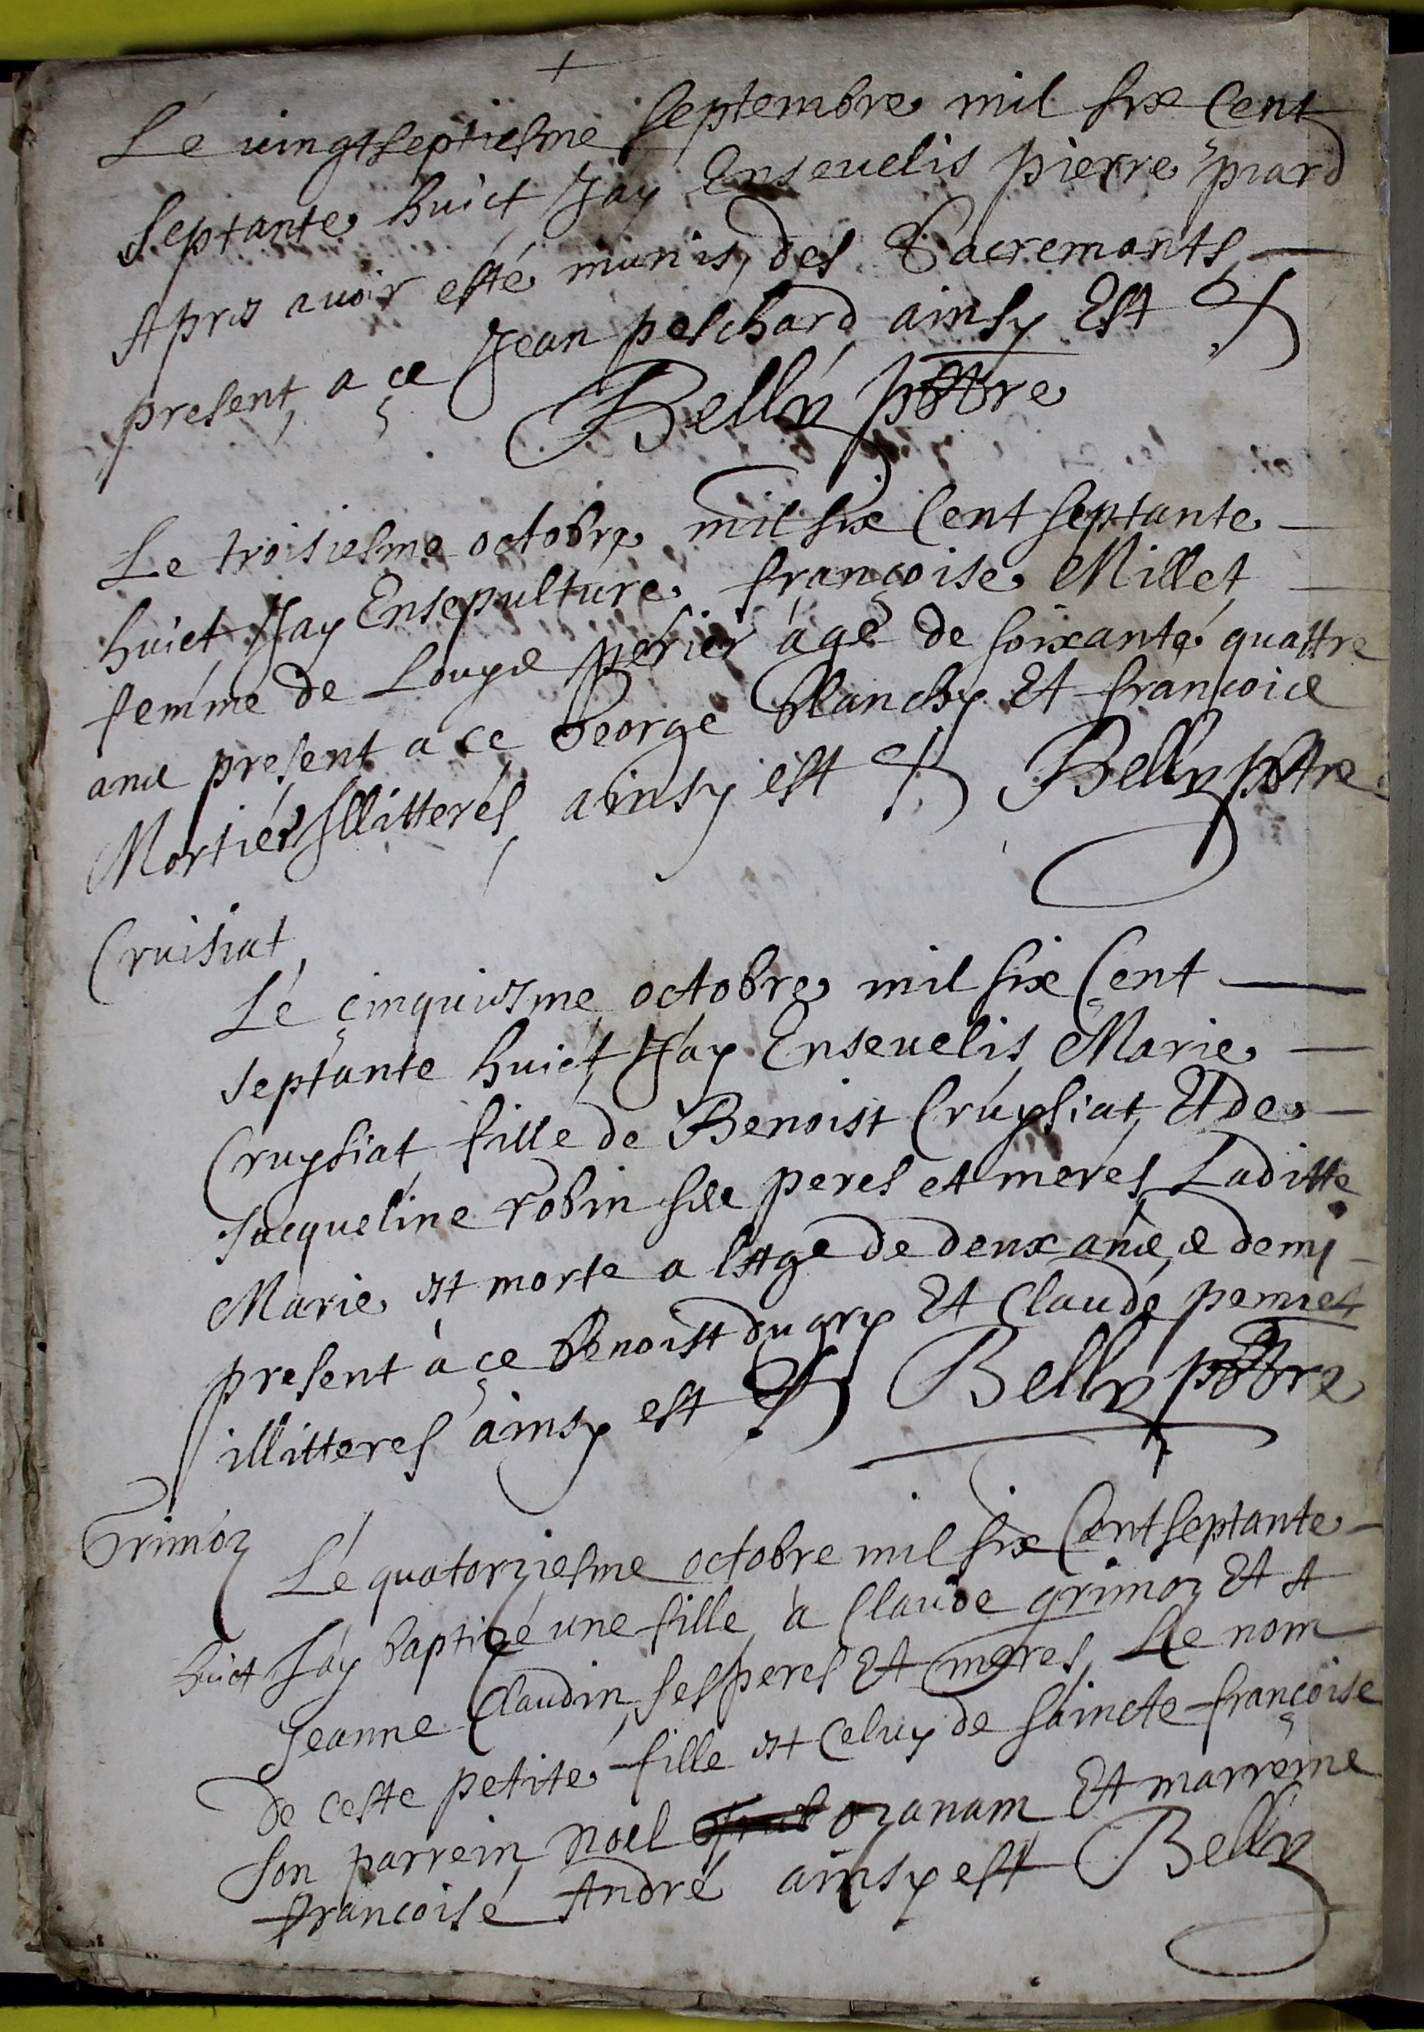 Le uingtseptiesme septembre mil six Cent
septante huict Jay Enseuelis pierre piard
Apres auoir esté munis des Sacremants
present a ce Jean peschard ainsy Est
Belly pbtre
Le troisiesme octobre mil six Cent septante
huict Jay Ensepulture françoise Millet
femme de Louys perier agé de soixante quattre
ans present a ce George blanchy Et françois
Mortier Illitterés ainsy est Belly pbtre
Cruisiat
Le cinquiesme octobre mil six Cent
septante huict Jay Enseuelis Marie
Cruysiat fille de Benoist Cruysiat Et de
Jacqueline robin ses peres et meres Laditte
Marie est morte a l'Age de deux ans & demy
present à ce Benoist dugry Et Claude
illitteres ainsy est Belly pbtre
Grimoz
Le quatorziesme octobre mil six Cent septante
huict Jay baptizé une fille a Claude grimoz Et A
Jeanne Claudin ses peres Et meres Le nom
de ceste petite fille est Celuy de saincte françoise
son parrein noel ozanam Et marreine
françoise André ainsy est Belly